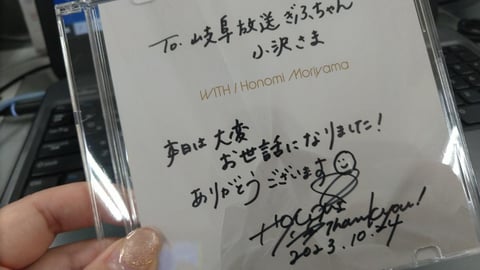 To: 岐阜放送ぎふちゃん
小沢さま
WITH / Honomi Moriyama
本日は大変
お世話になりました!
ありがとうございます
Thank you!
2023.10.24